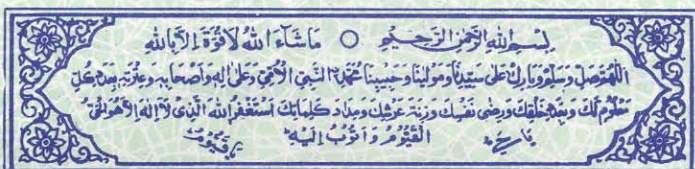 بِسْمِ اللهِ الرَّحْمٰنِ الرَّحِيْمِ ○ مَا شَآءَ اللهُ لَا قُوَّةَ اِلَّا بِاللهِ
اَللّٰهُمَّ صَلِّ وَسَلِّمْ وَبَارِكْ عَلٰى سَيِّدِنَا وَمَوْلٰينَا وَحَبِيْبِنَا مُحَمَّدِ ۨ النَّبِيِّ الْاُمِّيِّ وَعَلٰى اٰلِهٖ وَاَصْحَابِهٖ وَعِتْرَتِهٖ بِعَدَدِ كُلِّ
مَعْلُوْمٍ لَّكَ وَبِعَدَدِ خَلْقِكَ وَرِضٰى نَفْسِكَ وَزِنَةَ عَرْشِكَ وَمِدَادَ كَلِمَاتِكَ اَسْتَغْفِرُ اللهَ الَّذِىْ لَآ اِلٰهَ اِلَّا هُوَ الْحَىُّ
يَا حَيُّ الْقَيُّوْمُ وَاَتُوْبُ اِلَيْهِ يَا قَيُّوْمُ